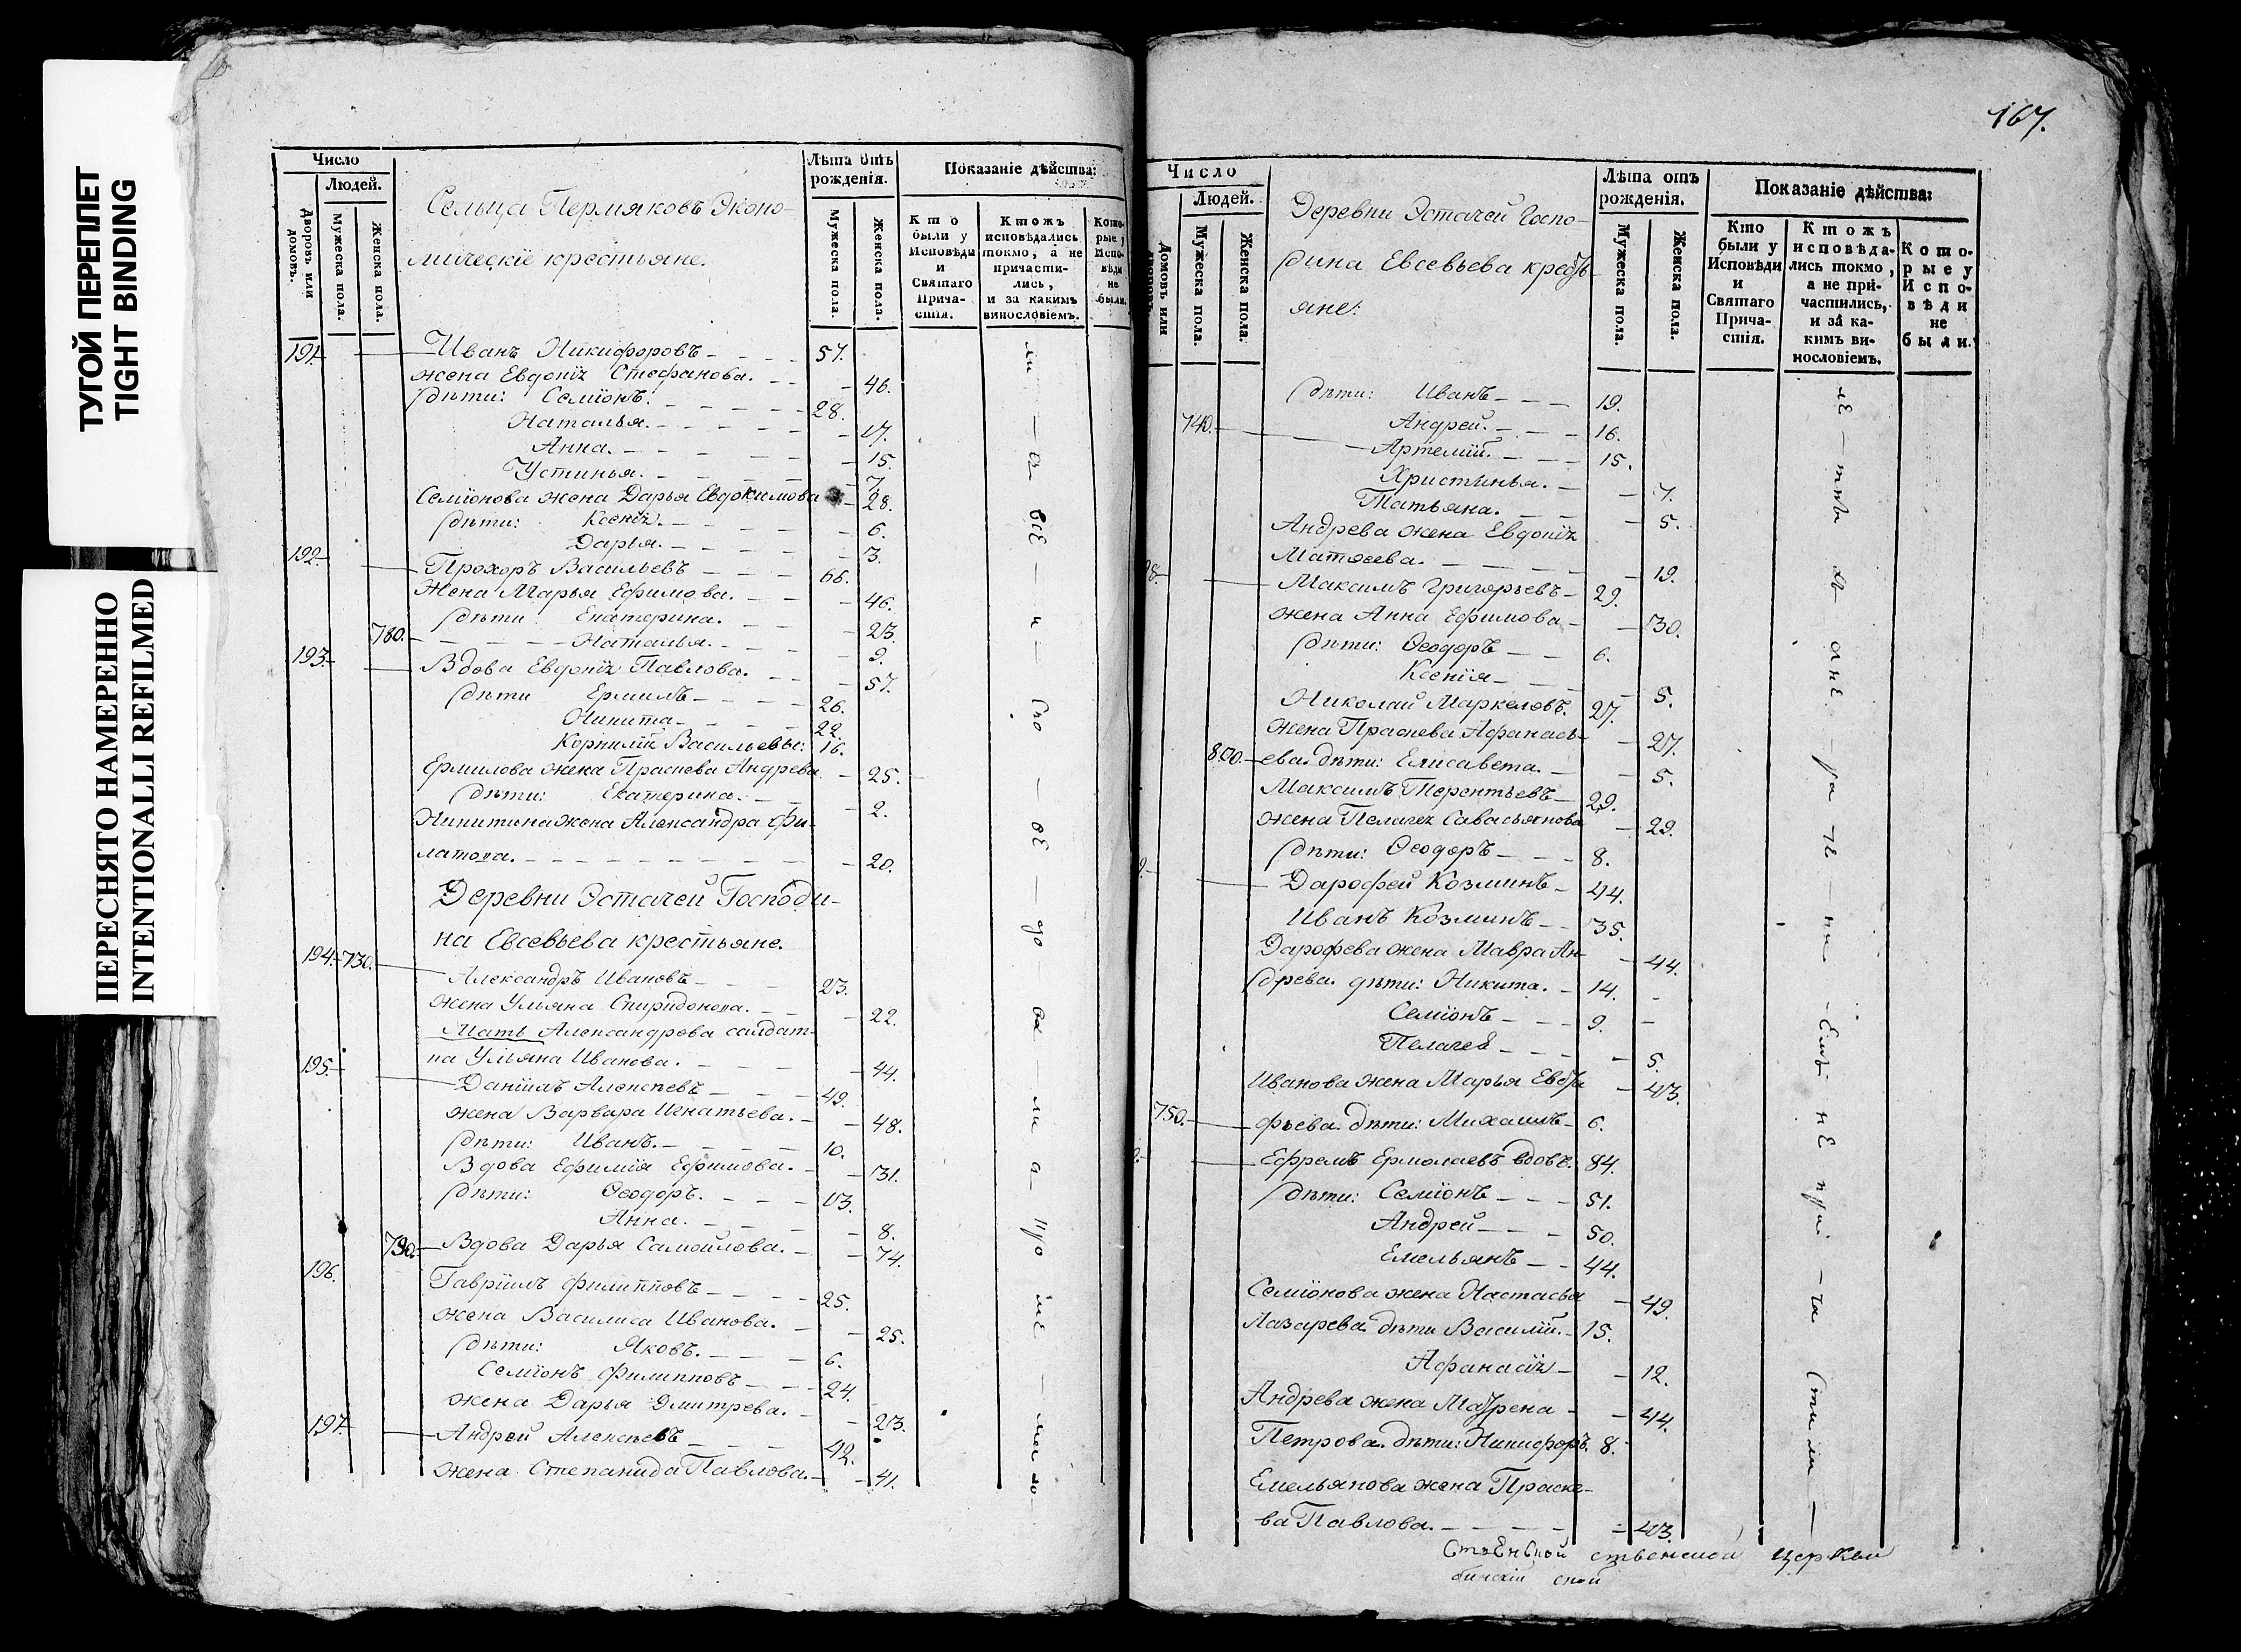 ТУГОЙ ПЕРЕПЛЕТ
TIGHT BINDING
ПЕРЕСНЯТО НАМЕРЕННО
INTENTIONALLI REFILMED
Число
Людей.
Дворовъ или домовъ.
Мужеска пола.
Женска пола.
Сельца Пермяковъ Эконо-
мическіе крестьяне.
Лѣта отъ рожденія.
Мужеска пола.
Женска пола.
Показаніе дѣйства:
Кто были у Исповѣди и Святаго Прича- стія.
Ктожъ исповѣдались токмо, а не причасти- лись, и за какимъ винословіемъ.
Кото- рые у Испо- вѣди не были.
191. Иванъ Никифоровъ 57.
жена Евдокія Стефанова. 46.
дѣти: Семіонъ. 28.
Наталья. 17.
Анна. 15.
Устинья. 7.
Семіонова жена Дарья Евдокимова 28.
дѣти: Ксенія. 6.
Дарья. 3.
192. Прохоръ Васильевъ 66.
Жена Марья Ефимова. 46.
дѣти Екатерина. 23.
780. Наталья. 9.
193. Вдова Евдокія Павлова. 57.
дѣти Ермилъ 26.
Никита 22.
Корнилій Васильевы: 16.
Ермилова жена Праскева Андрева 25.
дѣти: Екатерина. 2.
Никитина жена Александра Фи-
латова. 20.
Деревни Эстачей Господи-
на Евсевьева крестьяне.
194. 730. Александръ Ивановъ 23.
жена Ульяна Спиридонова. 22.
Мать Александрова салдат-
ка Ульяна Иванова. 44.
195. Даніилъ Алексѣевъ 49.
жена Варвара Игнатьева. 48.
дѣти: Иванъ. 10.
Вдова Ефимія Ефимова. 31.
дѣти: Ѳеодоръ. 13.
Анна. 8.
790. Вдова Дарья Самойлова. 74.
196. Гавріилъ Филипповъ 25.
жена Василиса Иванова. 25.
дѣти: Яковъ. 6.
Семіонъ Филипповъ 24.
жена Дарья Дмитрева. 23.
197. Андрей Алексѣевъ 42.
жена Степанида Павлова. 41.
167.
Число
Людей.
Домовъ или
Мужеска пола.
Женска пола.
Деревни Эстачей Госпо-
дина Евсевьева кресть-
яне:
Лѣта отъ рожденія.
Мужеска пола.
Женска пола.
Показаніе дѣйства:
Кто были у Исповѣди и Святаго Прича- стія.
Ктожъ исповѣда- лись токмо, а не при- частились, и за ка- кимъ ви- нословіемъ.
Кото- рые у Испо- вѣди не были.
дѣти: Иванъ 19.
740. Андрей. 16.
Артемій. 15.
Христинья. 7.
Татьяна. 5.
Андрева жена Евдокія
Матѳеева. 19.
Максимъ Григорьевъ 29.
жена Анна Ефимова 30.
дѣти: Ѳеодоръ 6.
Ксенія 5.
Николай Маркеловъ. 27.
жена Праскева Афанась-
800. ева. дѣти: Елисавета. 5.
27.
Максимъ Терентьевъ 29.
жена Пелагея Савасьянова 29.
дѣти: Ѳеодоръ 8.
Дарофей Козминъ 44.
Иванъ Козминъ 35.
Дарофева жена Мавра Ан-
44.
древа. дѣти: Никита. 14.
Семіонъ 9.
Пелагея 5.
Иванова жена Марья Евдо 43.
750. фьева. дѣти: Михаилъ 6.
Ефремъ Ермолаевъ вдовъ. 84.
дѣти: Семіонъ 51.
Андрей 50.
Емельянъ 44.
Семіонова жена Настасья 49.
Лазарева. дѣти Василій. 15.
Афанасія 12.
Андрева жена Матрена 44.
Петрова. дѣти: Никифоръ. 8.
Емельянова жена Праске-
ва Павлова. 43.
ственской церкви